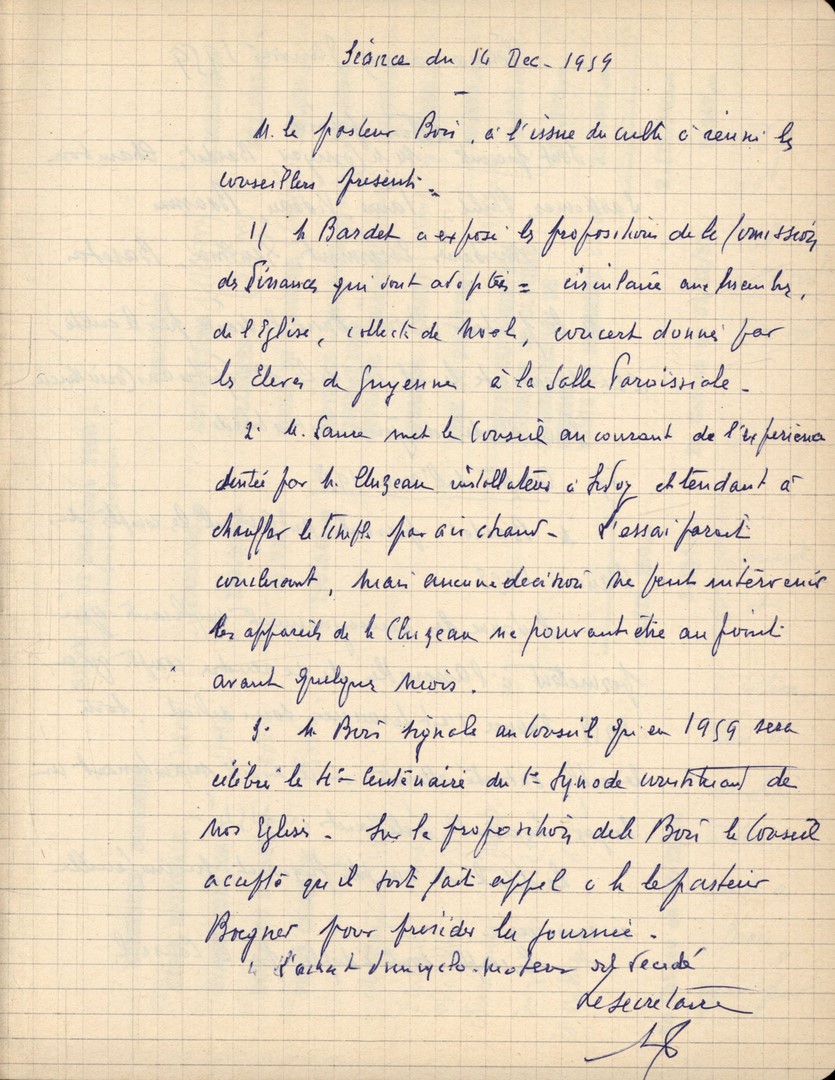 Séance du 14 Dec - 1959
M. le pasteur Bois, à l'issue du culte à réuni les
conseillers presents.
1/ M Bardet a exposé les propositions de la Comission
des Finances qui sont adoptées = circulaire aux membres,
de l'Eglise, collecte de Noel, concert donné par
les Eleves de Guyenne à la Salle Paroissiale -
2. M. met le Conseil au courant de l'expérience
tentée par M. Cluzeau installateur à et tendant à
chauffer le temple par air chaud - L'essai parait
concluant, mais aucune décision ne peut intervenir
les appareils de M Cluzeau ne pouvant être au point
avant quelques mois.
3. M Bois signale au Conseil qu'en 1959 sera
célébré le 4e Centenaire du 1er Synode constituant de
nos Eglises - Sur la proposition de M Bois le Conseil
accepte qu'il soit fait appel a M le pasteur
Boegner pour présider la journée.
4 l'achat d'un cyclo-moteur est décidé
Le secretaire